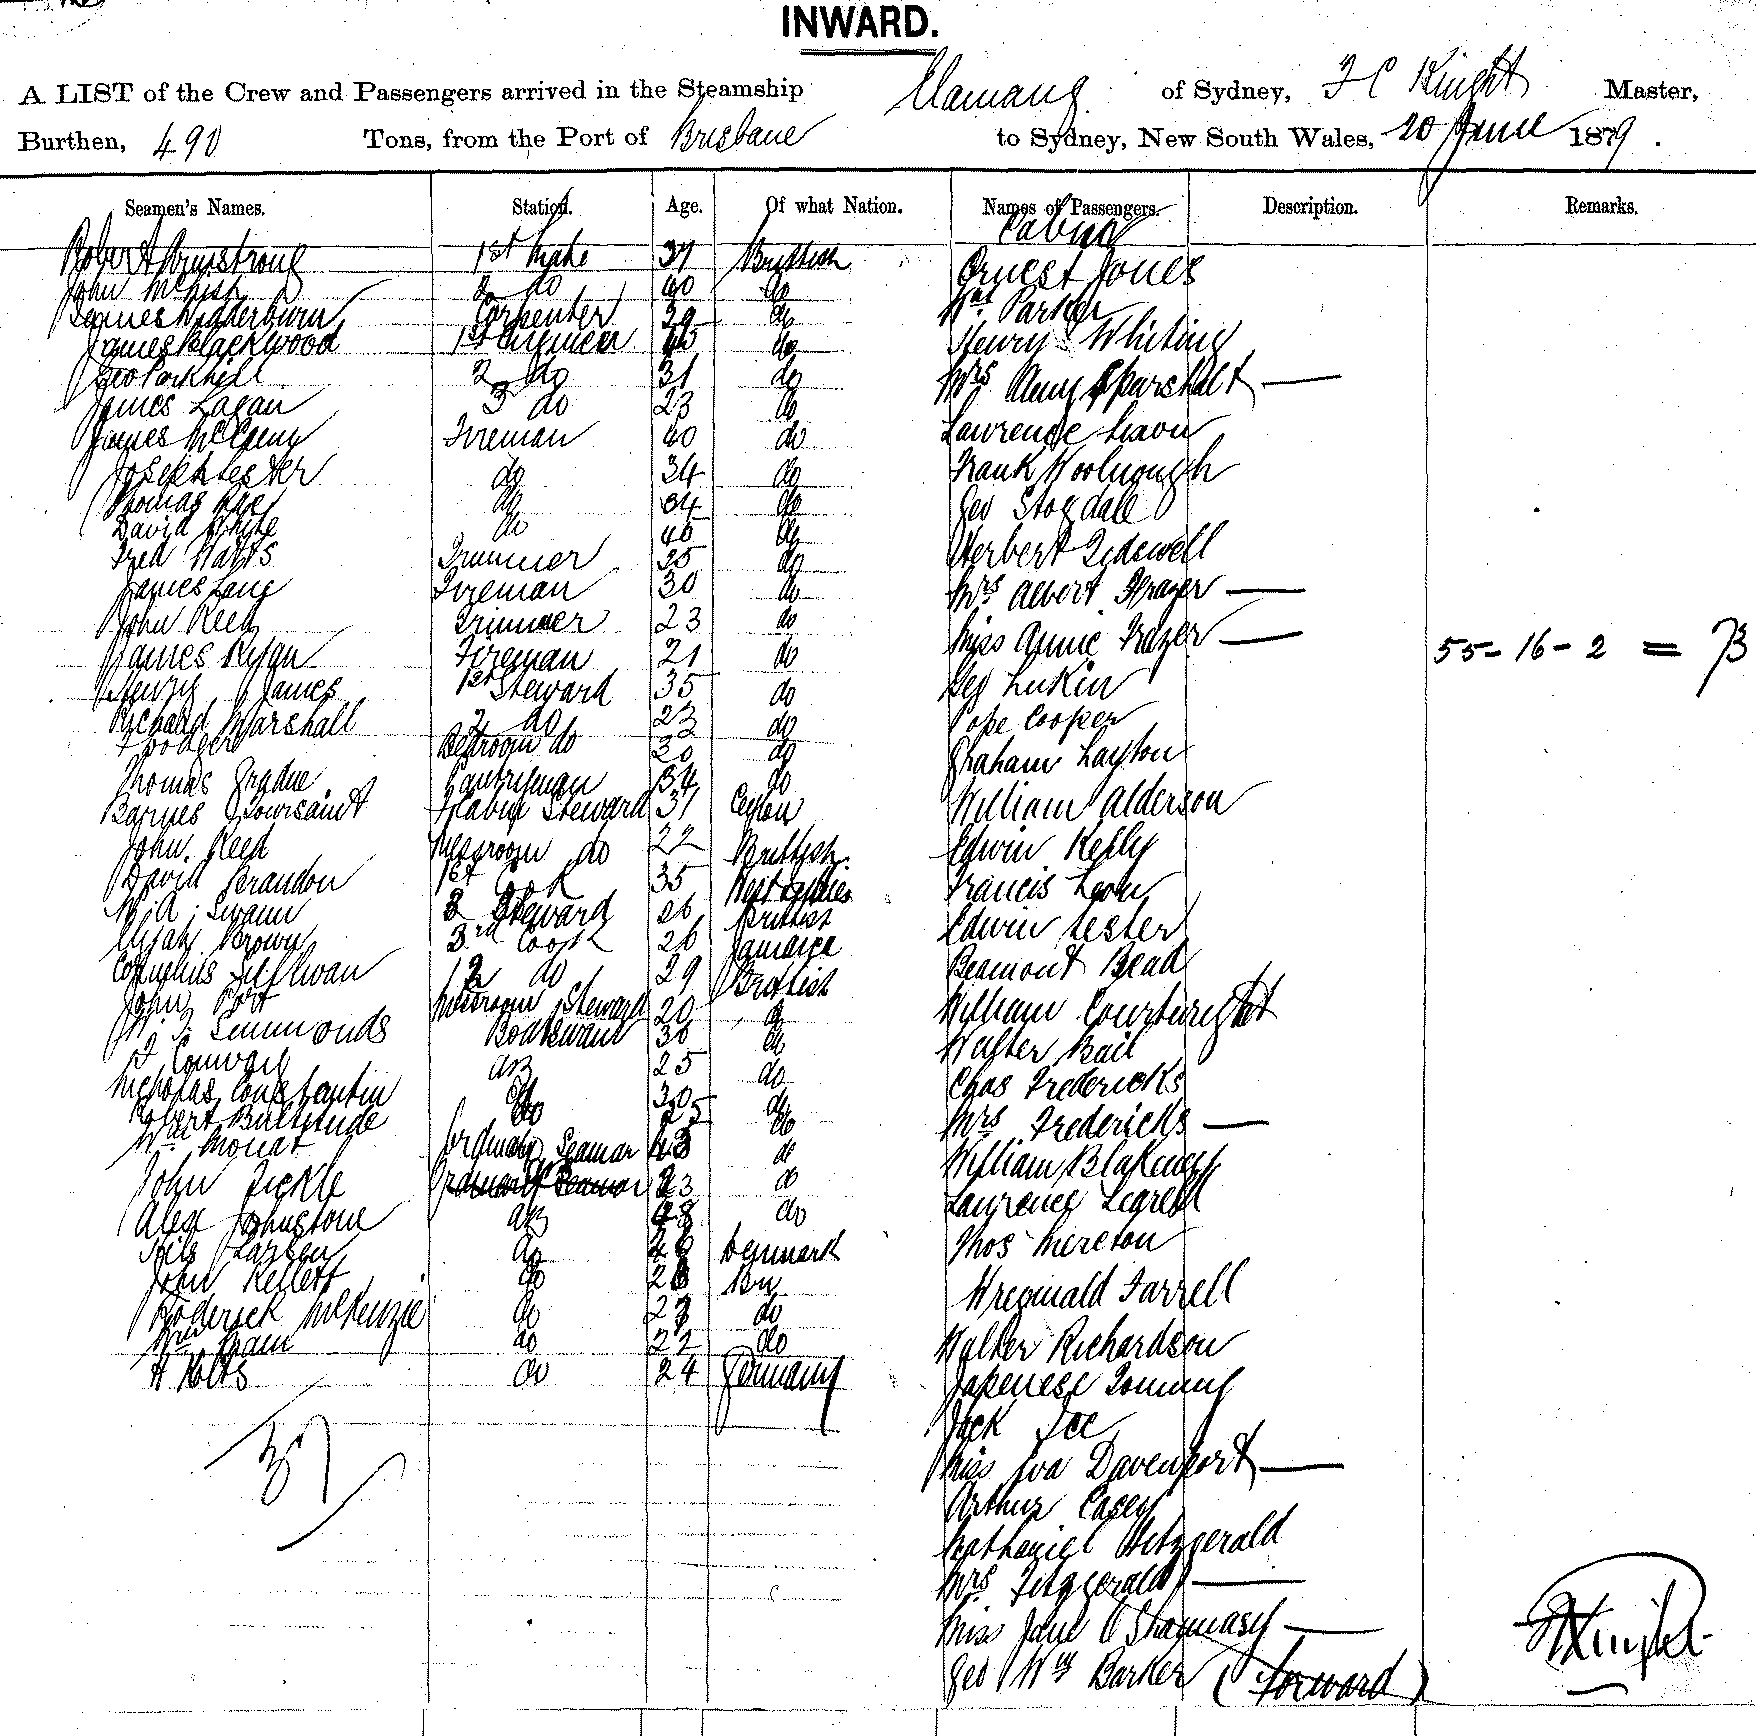 INWARD.
A LIST of the Crew and Passengers arrived in the Steamship of Sydney, F C Knight Master,
Burthen, 490 Tons, from the Port of Brisbane to Sydney, New South Wales, 20 June 1879.
Seamen's Names. Station. Age. Of what Nation. Names of Passengers. Description. Remarks.
Cabin
Robert Armstrong 1st Mate 37 Brittish Ernest Jones
John McNish 2 do 40 do Wm Parker
James Wedderburn Carpenter 29 do Henry Whiting
James Blackwood 1st Engineer do Mrs Amy Sparshalt —
Geo Parkhill 2 do 31 do
James Lagan 3 do 23 do Lawrence
James Fireman 40 do Frank Woolnough
Joseph Lester do 34 do Geo Stogdale
Thomas do 34 do Herbert Tidswell
David White do 40 do Mrs Albert Frazer —
Fred Watts Trimmer 25 do Miss Annie Frazer —
James Lang Fireman 30 do Geo Lukin
John Reed Trimmer 23 do Pope Cooper
James Ryan Fireman 21 do Graham Layton
Henry James 1st Steward 35 do William Alderson
Richard Marshall 2 do 23 do Edwin Kelly
Bedroom do 30 do Francis Leon
Thomas Pantryman 34 do Edwin Lester
Barnes Toursaint Cabin Steward 31 Ceylon Beamont Read
John Reed Messroom do 22 Brittish William Courtwright
David Brandon 1st Cook 35 West Indies Walter Bail
W A Swann 2 Steward 26 Brittish Chas Fredericks
Elijah Brown 3rd Cook 26 Jamaica Mrs Fredericks —
Cornelius Sullivan 2 do 29 Brittish William Blakeney
John Port Messroom Steward 20 do Lawrence
W. J. Simmonds Boatswain 30 do Thos Mereton
Conway AB 25 do Farrell
Nicholas Constantin do 30 do Walter Richardson
Robert Bultitude do 25 do Japenese Tommy
Wm Mouat Ordinary Seaman do Jack
John Tickle 23 do Miss Iva Davenport —
Alex Johnstone AB 48 do Arthur Casey
Nils Larsen do Denmark Nathaniel Fitzgerald
John Kellett do Bri Mrs Fitzgerald —
Roderick McKenzie do do Miss Jane O'Shannasy —
Wm do 22 do Geo Wm Barker (Forward)
H Kolts do 24 Germany
37
55 - 16 - 2 = 73
F C Knight